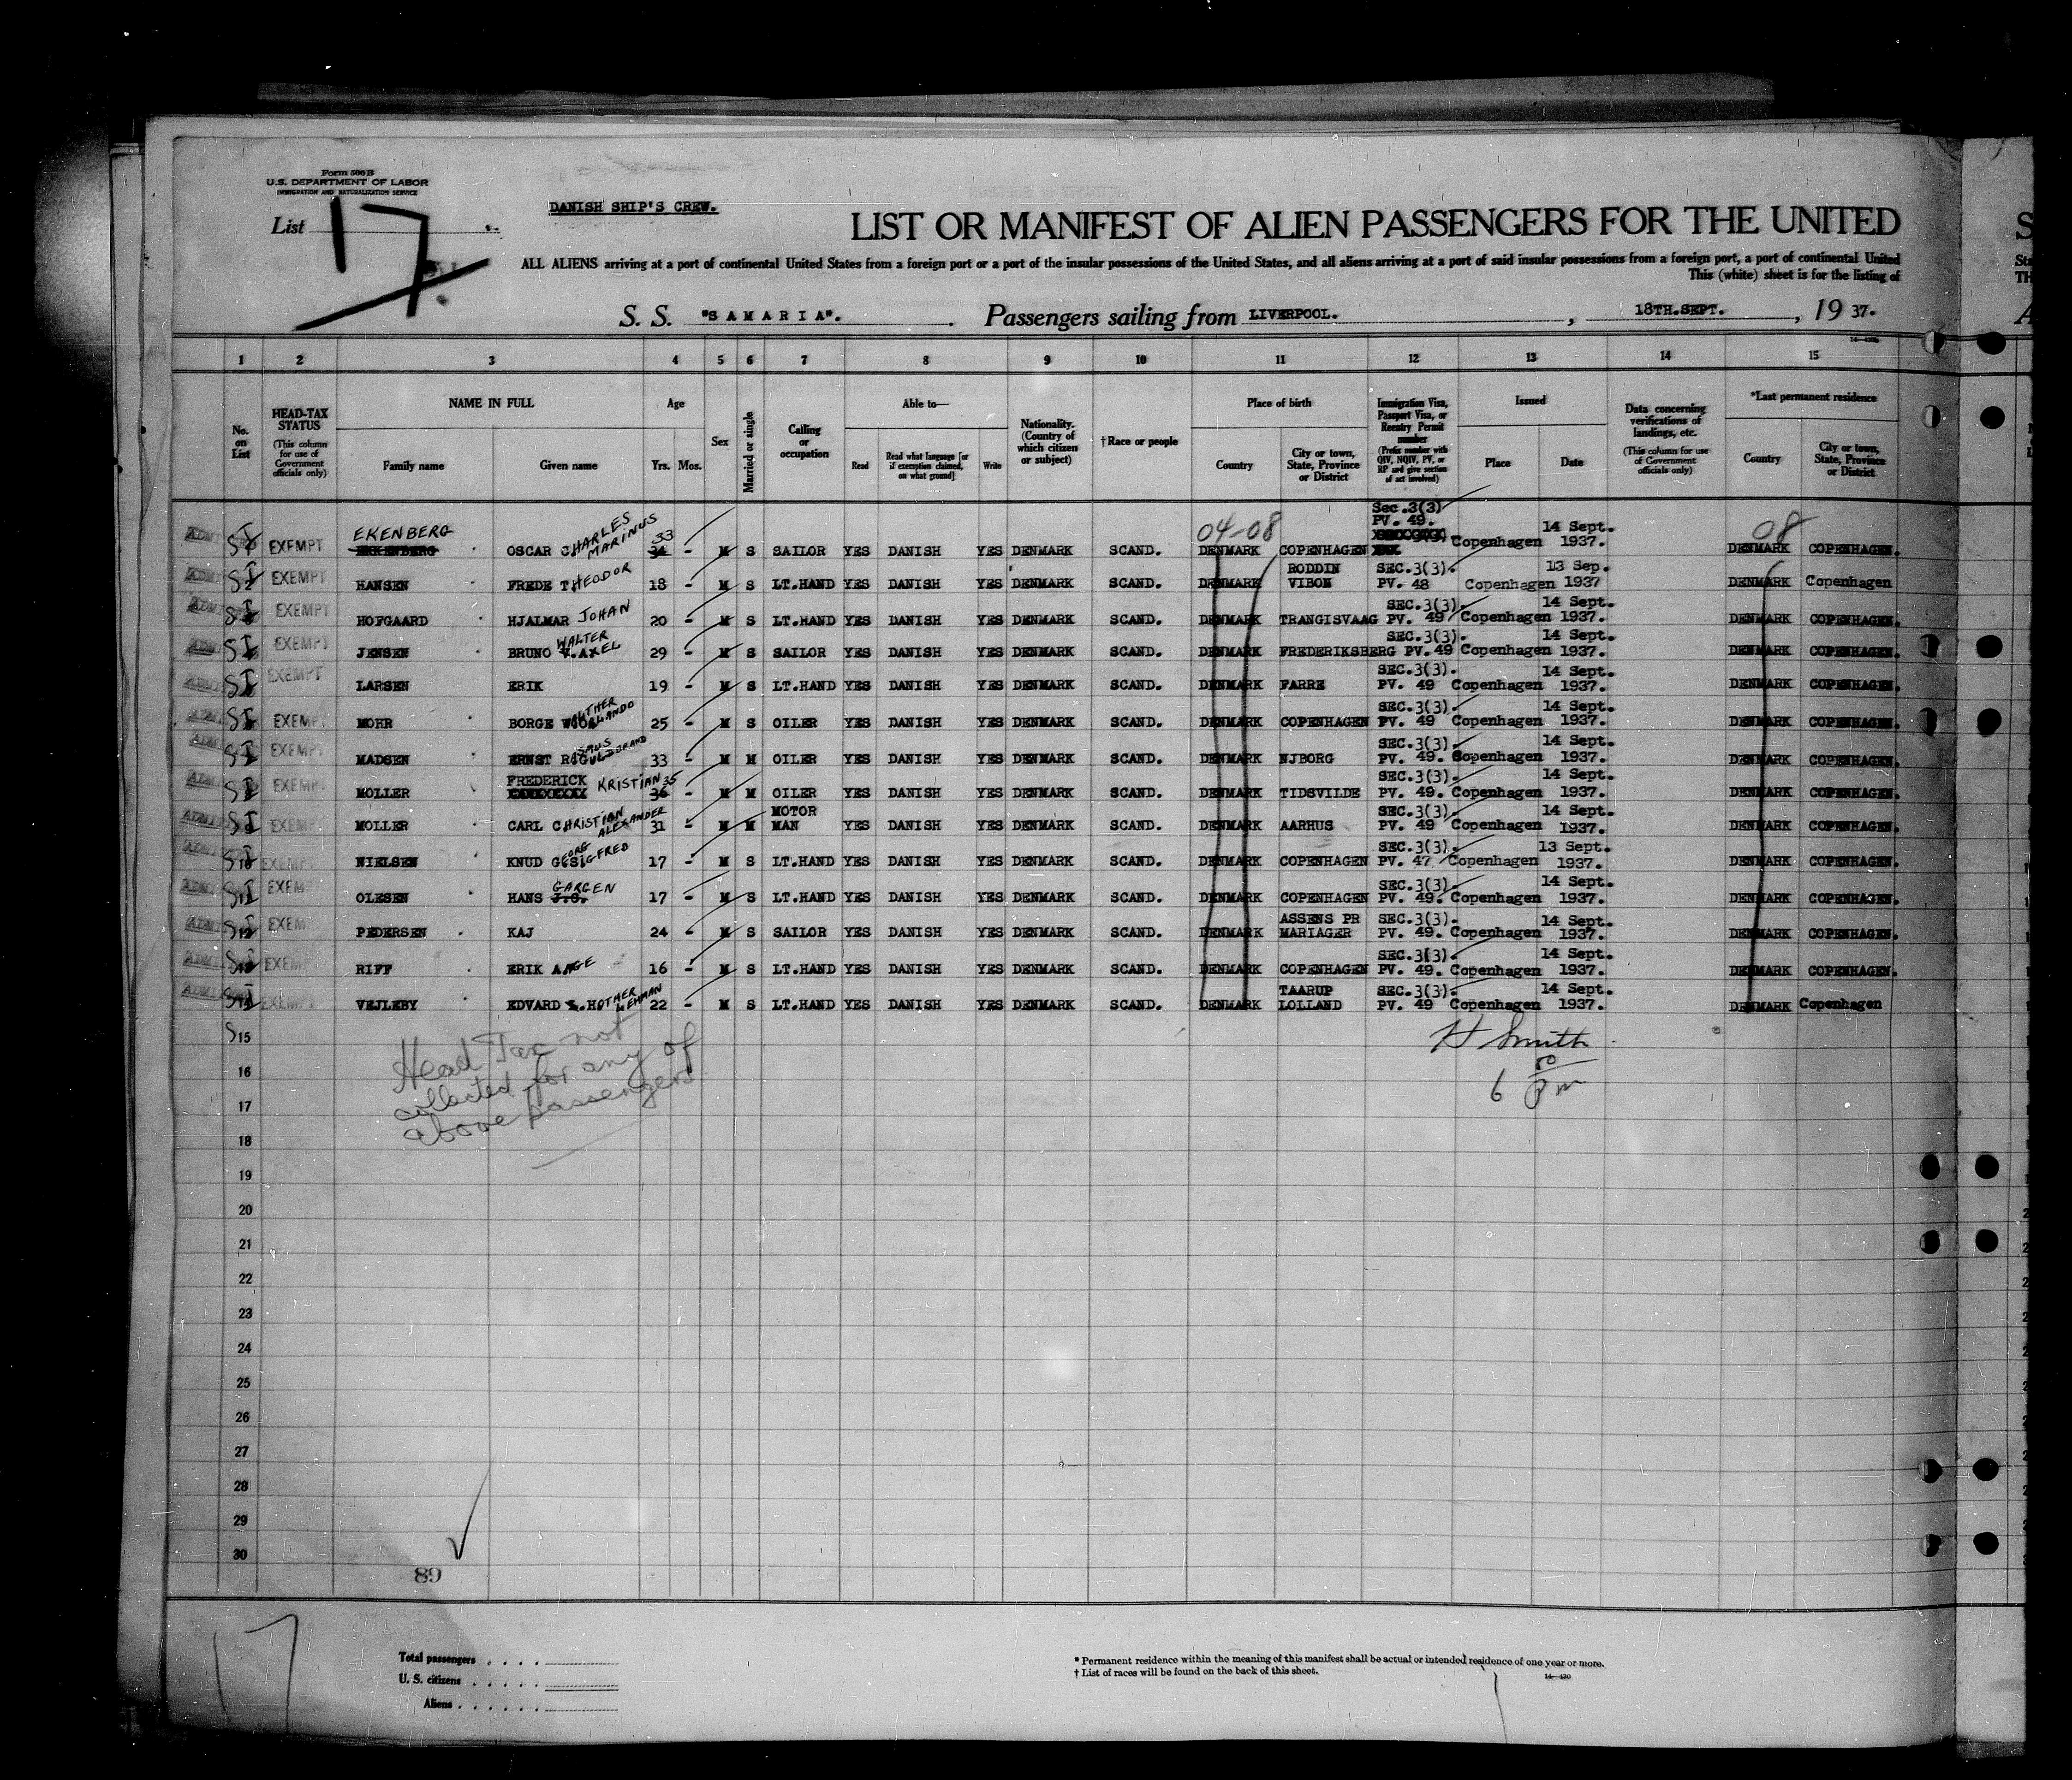 Form 500 B
U.S. DEPARTMENT OF LABOR
IMMIGRATION AND NATURALIZATION SERVICE
List 17
DANISH SHIP'S CREW.
LIST OR MANIFEST OF ALIEN PASSENGERS FOR THE UNITED
ALL ALIENS arriving at a port of continental United States from a foreign port or a port of the insular possessions of the United States, and all aliens arriving at a port of said insular possessions from a foreign port, a port of continental United
This (white) sheet is for the listing of
S. S. "SAMARIA". Passengers sailing from LIVERPOOL. , 18TH.SEPT. , 19 37.
1 2 3 4 5 6 7 8 9 10 11 12 13 14 15
No. on List
HEAD-TAX STATUS (This column for use of Government officials only)
NAME IN FULL
Family name Given name
Age
Yrs. Mos.
Sex
Married or single
Calling or occupation
Able to—
Read Read what language [or if exemption claimed, on what ground] Write
Nationality. (Country of which citizen or subject)
†Race or people
Place of birth
Country City or town, State, Province or District
Immigration Visa, Passport Visa, or Reentry Permit number (Prefix number with QIV, NQIV, PV, or RP and give section of act involved)
Issued
Place Date
Data concerning verifications of landings, etc. (This column for use of Government officials only)
*Last permanent residence
Country City or town, State, Province or District
04-08 08
EXEMPT EKENBERG OSCAR CHARLES MARINUS 33 M S SAILOR YES DANISH YES DENMARK SCAND. DENMARK COPENHAGEN Sec.3(3) PV. 49. Copenhagen 14 Sept. 1937. DENMARK COPENHAGEN.
EXEMPT HANSEN FREDE THEODOR 18 - M S LT.HAND YES DANISH YES DENMARK SCAND. DENMARK RODDIN VIBON SEC.3(3). PV. 48 Copenhagen 13 Sep. 1937 DENMARK Copenhagen
EXEMPT HOFGAARD HJALMAR JOHAN 20 - M S LT.HAND YES DANISH YES DENMARK SCAND. DENMARK TRANGISVAAG SEC.3(3). PV. 49 Copenhagen 14 Sept. 1937. DENMARK COPENHAGEN.
EXEMPT JENSEN BRUNO WALTER AXEL 29 - M S SAILOR YES DANISH YES DENMARK SCAND. DENMARK FREDERIKSBERG SEC.3(3). PV. 49 Copenhagen 14 Sept. 1937. DENMARK COPENHAGEN.
EXEMPT LARSEN ERIK 19 - M S LT.HAND YES DANISH YES DENMARK SCAND. DENMARK FARRE SEC.3(3). PV. 49 Copenhagen 14 Sept. 1937. DENMARK COPENHAGEN.
EXEMPT MOHR BORGE 25 - M S OILER YES DANISH YES DENMARK SCAND. DENMARK COPENHAGEN SEC.3(3). PV. 49 Copenhagen 14 Sept. 1937. DENMARK COPENHAGEN.
EXEMPT MADSEN ERNST 33 - M M OILER YES DANISH YES DENMARK SCAND. DENMARK NJBORG SEC.3(3). PV. 49. Copenhagen 14 Sept. 1937. DENMARK COPENHAGEN.
EXEMPT MOLLER FREDERICK KRISTIAN 35 - M M OILER YES DANISH YES DENMARK SCAND. DENMARK TIDSVILDE SEC.3(3). PV. 49. Copenhagen 14 Sept. 1937. DENMARK COPENHAGEN.
EXEMPT MOLLER CARL CHRISTIAN ALEXANDER 31 - M M MOTOR MAN YES DANISH YES DENMARK SCAND. DENMARK AARHUS SEC.3(3). PV. 49 Copenhagen 14 Sept. 1937. DENMARK COPENHAGEN.
EXEMPT NIELSEN KNUD GEORG SIGFRED 17 - M S LT.HAND YES DANISH YES DENMARK SCAND. DENMARK COPENHAGEN SEC.3(3). PV. 47 Copenhagen 13 Sept. 1937. DENMARK COPENHAGEN.
EXEM OLESEN HANS GARGEN J.G. 17 - M S LT.HAND YES DANISH YES DENMARK SCAND. DENMARK COPENHAGEN SEC.3(3). PV. 49. Copenhagen 14 Sept. 1937. DENMARK COPENHAGEN.
EXEM PEDERSEN KAJ 24 - M S SAILOR YES DANISH YES DENMARK SCAND. DENMARK ASSENS PR MARIAGER SEC.3(3). PV. 49. Copenhagen 14 Sept. 1937. DENMARK COPENHAGEN.
EXEM RIFF ERIK AAGE 16 - M S LT.HAND YES DANISH YES DENMARK SCAND. DENMARK COPENHAGEN SEC.3(3). PV. 49. Copenhagen 14 Sept. 1937. DENMARK COPENHAGEN.
EXEMPT VEJLEBY EDVARD HOTHER LEHMAN 22 - M S LT.HAND YES DANISH YES DENMARK SCAND. DENMARK TAARUP LOLLAND SEC.3(3). PV. 49 Copenhagen 14 Sept. 1937. DENMARK Copenhagen
15
Head Tax not
collected for any of
above passengers
H Smith
6 00 Pm
16
17
18
19
20
21
22
23
24
25
26
27
28
29
30
89
17
Total passengers
U. S. citizens
Aliens
* Permanent residence within the meaning of this manifest shall be actual or intended residence of one year or more.
† List of races will be found on the back of this sheet.
14—420